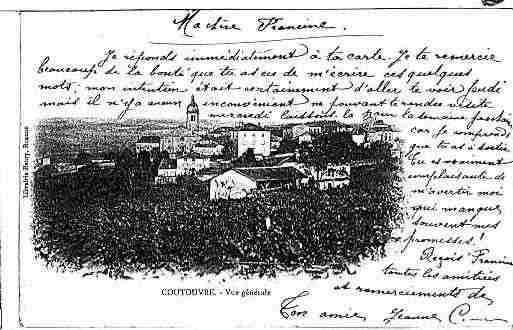 Ma chère Francine.
Je réponds immédiatement à ta carte. Je te remercie
beaucoup de la bonté que tu as eue de m'écrire ces quelques
mots, mon intention était certainement d'aller te voir jeudi
mais il n'y a aucun inconvénient ne pouvant te rendre visite
mercredi la semaine
car je comprends
que tu as à sortir
Tu es vraiment
complaisante de
m'avertir moi
qui manque
souvent mes
promesses!
Reçois Francine
toutes les amitiés
et remerciements de
Ton amie Jeanne C.
COUTOUVRE. - Vue générale
Librairie Roanne